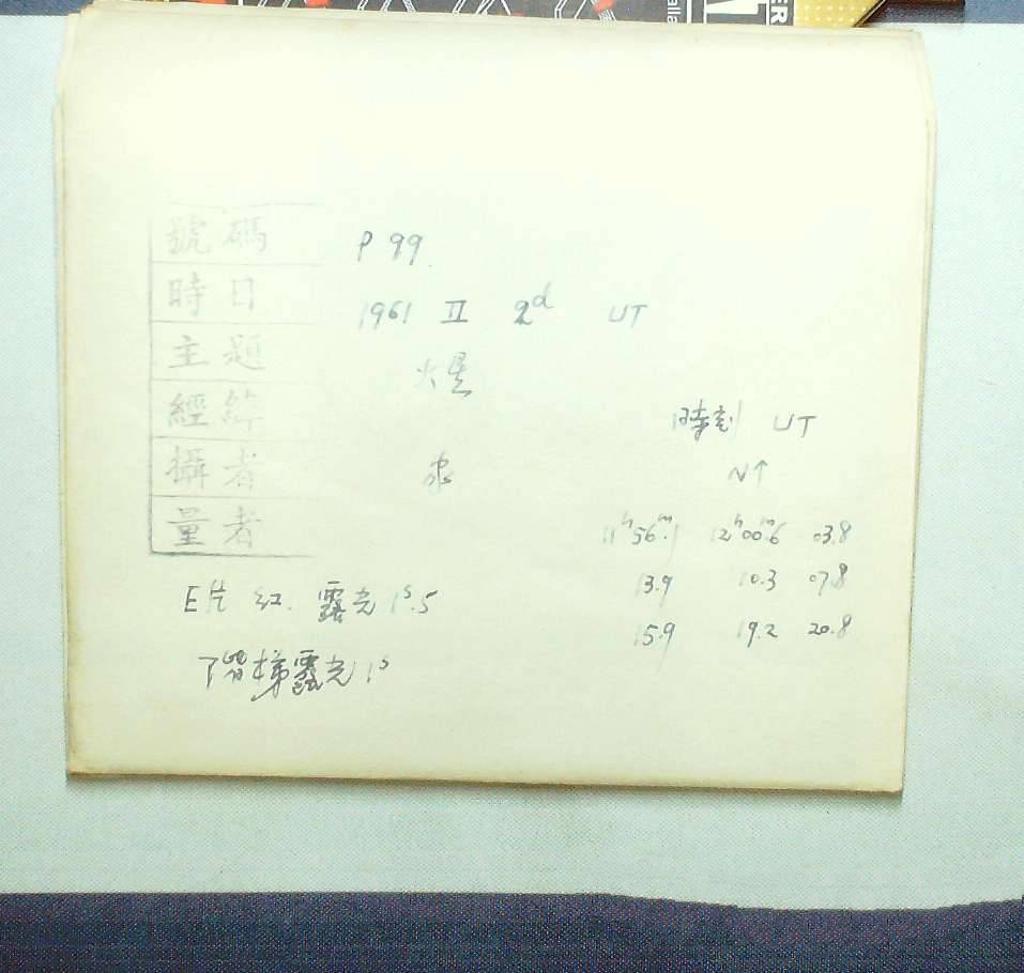 號碼 P 99.
時日 1961 II 2d UT
主題 火星
經緯
攝者
量者
時刻 UT
N↑
11h56m.1 12h00m.6 03.8
13.9 10.3 07.8
15.9 19.2 20.8
E片 紅. 露光 1s.5
階梯露光 1s
ER